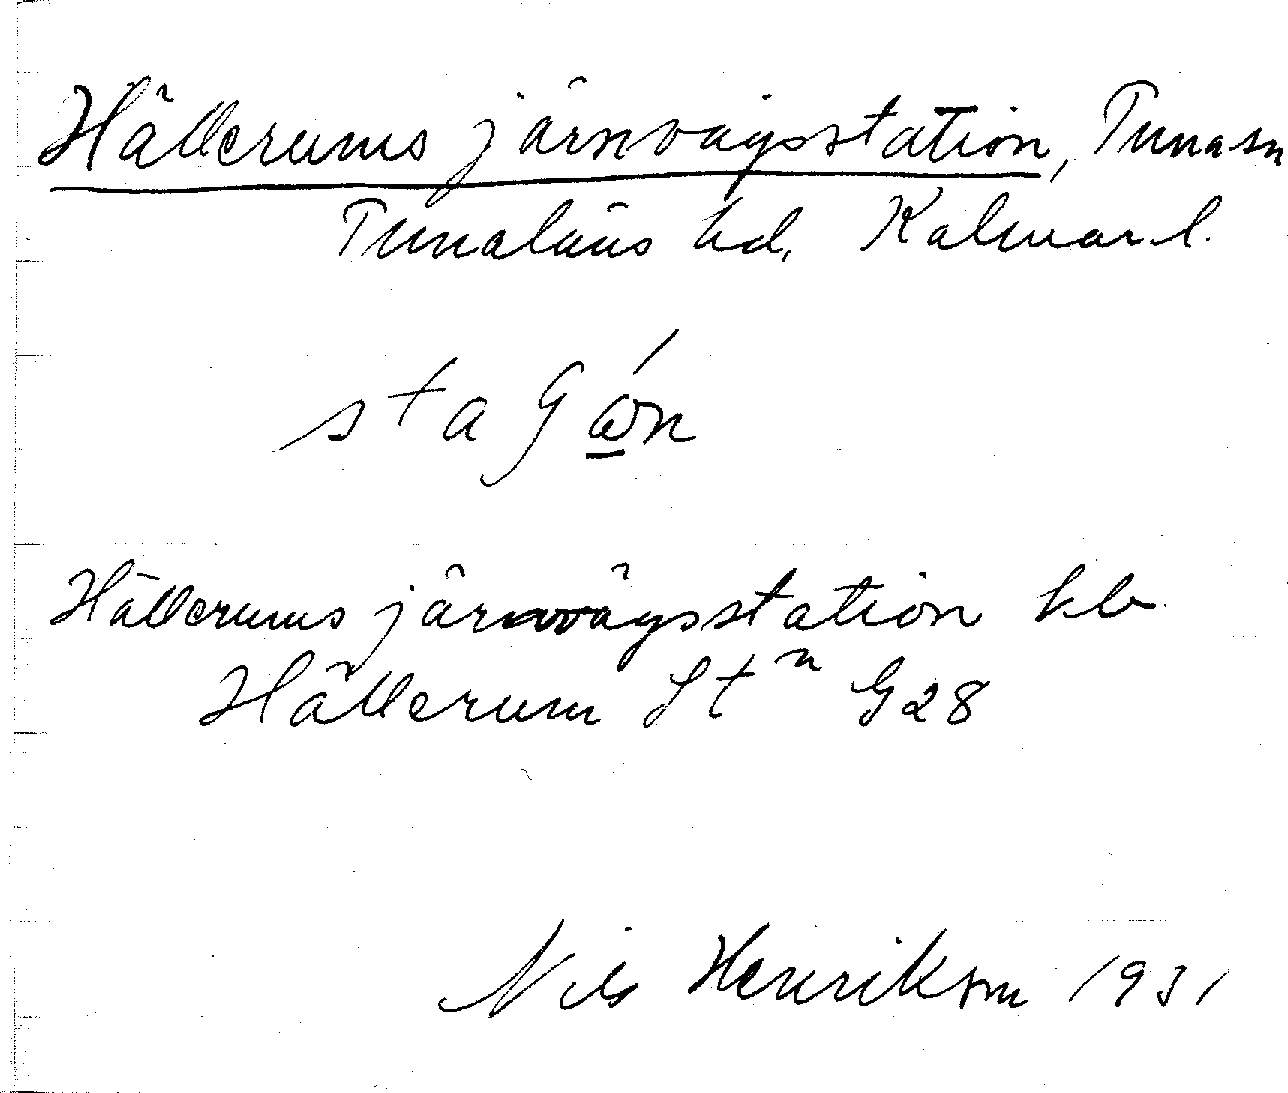 Hällerums järnvägsstation, Tuna sn
Tunaläns hd, Kalmar l.
staʃώ̲n
Hällerums järnvägsstation kb
Hällerum Stⁿ G28
Nils Henrikson 1931